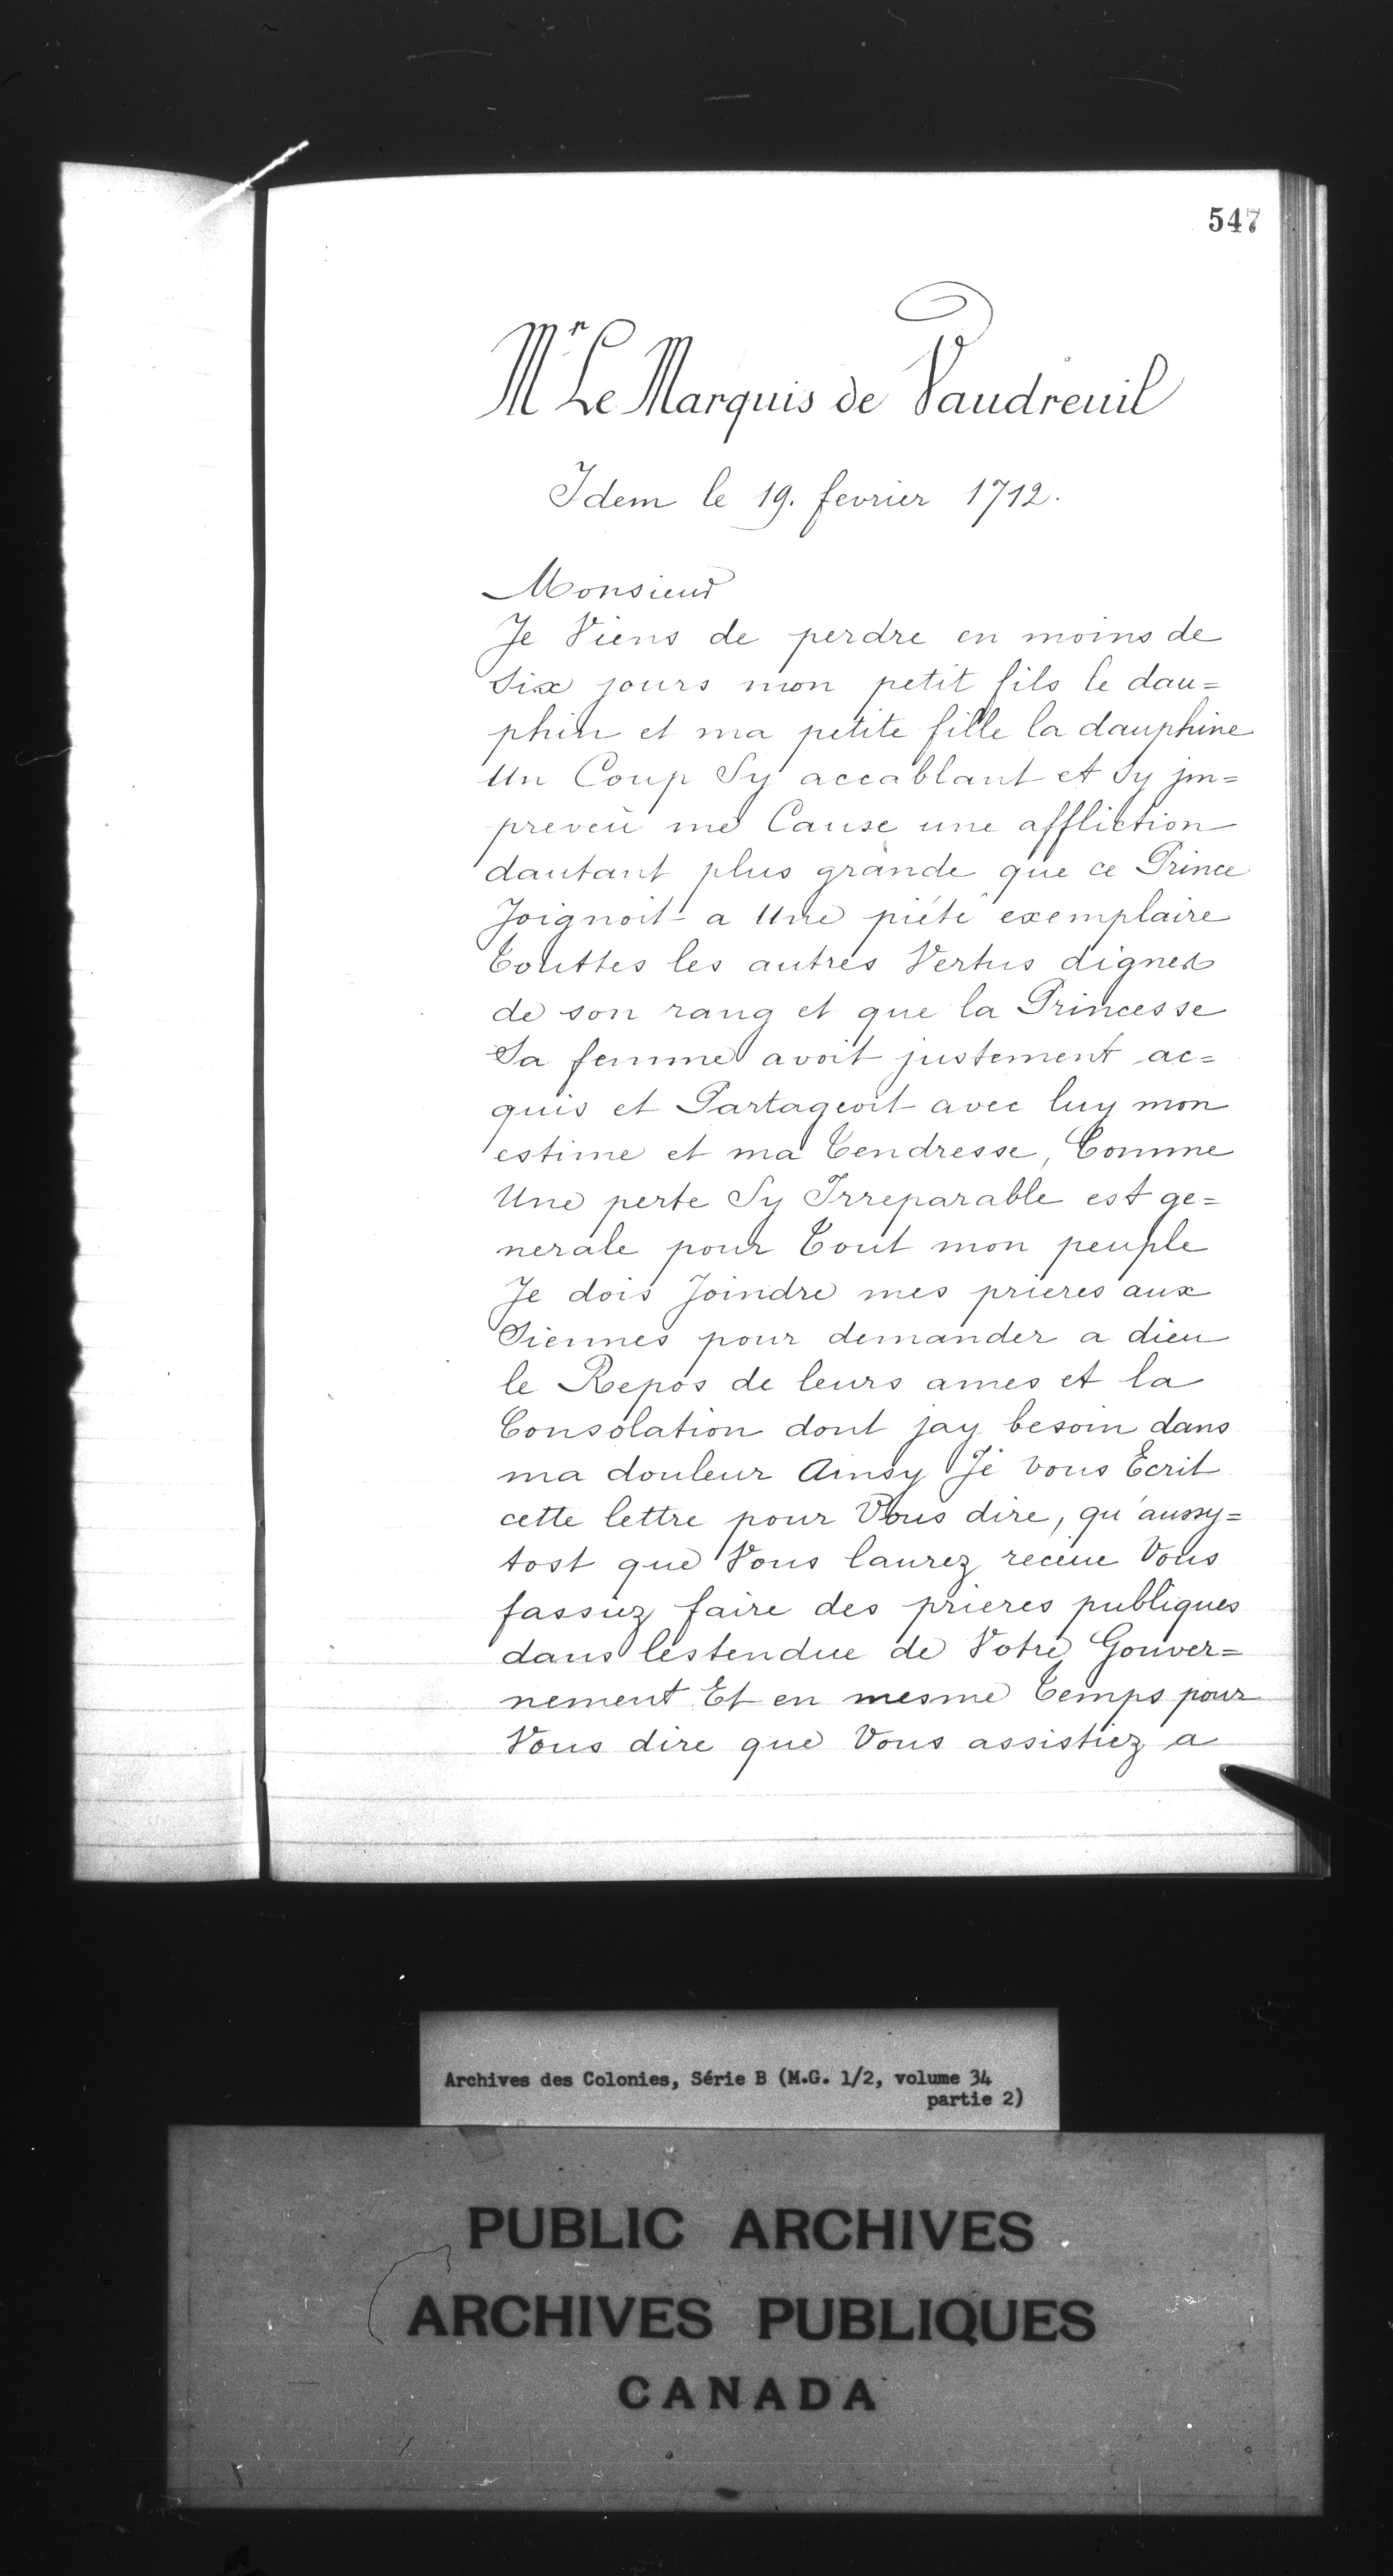 547
Mr Le Marquis de Vaudreuil
Idem le 19. fevrier 1712.
Monsieur
Je Viens de perdre en moins de
Six jours mon petit fils le dau=
phin et ma petite fille la dauphine
Un Coup Sy accablant et Sy jm=
preveü me Cause une affliction
dautant plus grande que ce Prince
Joignoit a Une piété exemplaire
Touttes les autres Vertus dignes
de son rang et que la Princesse
Sa femme avoit justement ac=
quis et Partageoit avec luy mon
estime et ma Tendresse, Comme
Une perte Sy Irreparable est ge=
nerale pour Tout mon peuple
Je dois Joindre mes prieres aux
Siennes pour demander a dieu
le Repos de leurs ames et la
Consolation dont jay besoin dans
ma douleur Ainsy Je vous Ecrit
cette lettre pour Vous dire, qu'aussy=
tost que Vous laurez receue Vous
fassiez faire des prieres publiques
dans lestendue de Votre Gouver=
nement Et en mesme Temps pour
Vous dire que Vous assistiez a
Archives des Colonies, Série B (M.G. 1/2, volume 34
partie 2)
PUBLIC ARCHIVES
ARCHIVES PUBLIQUES
CANADA